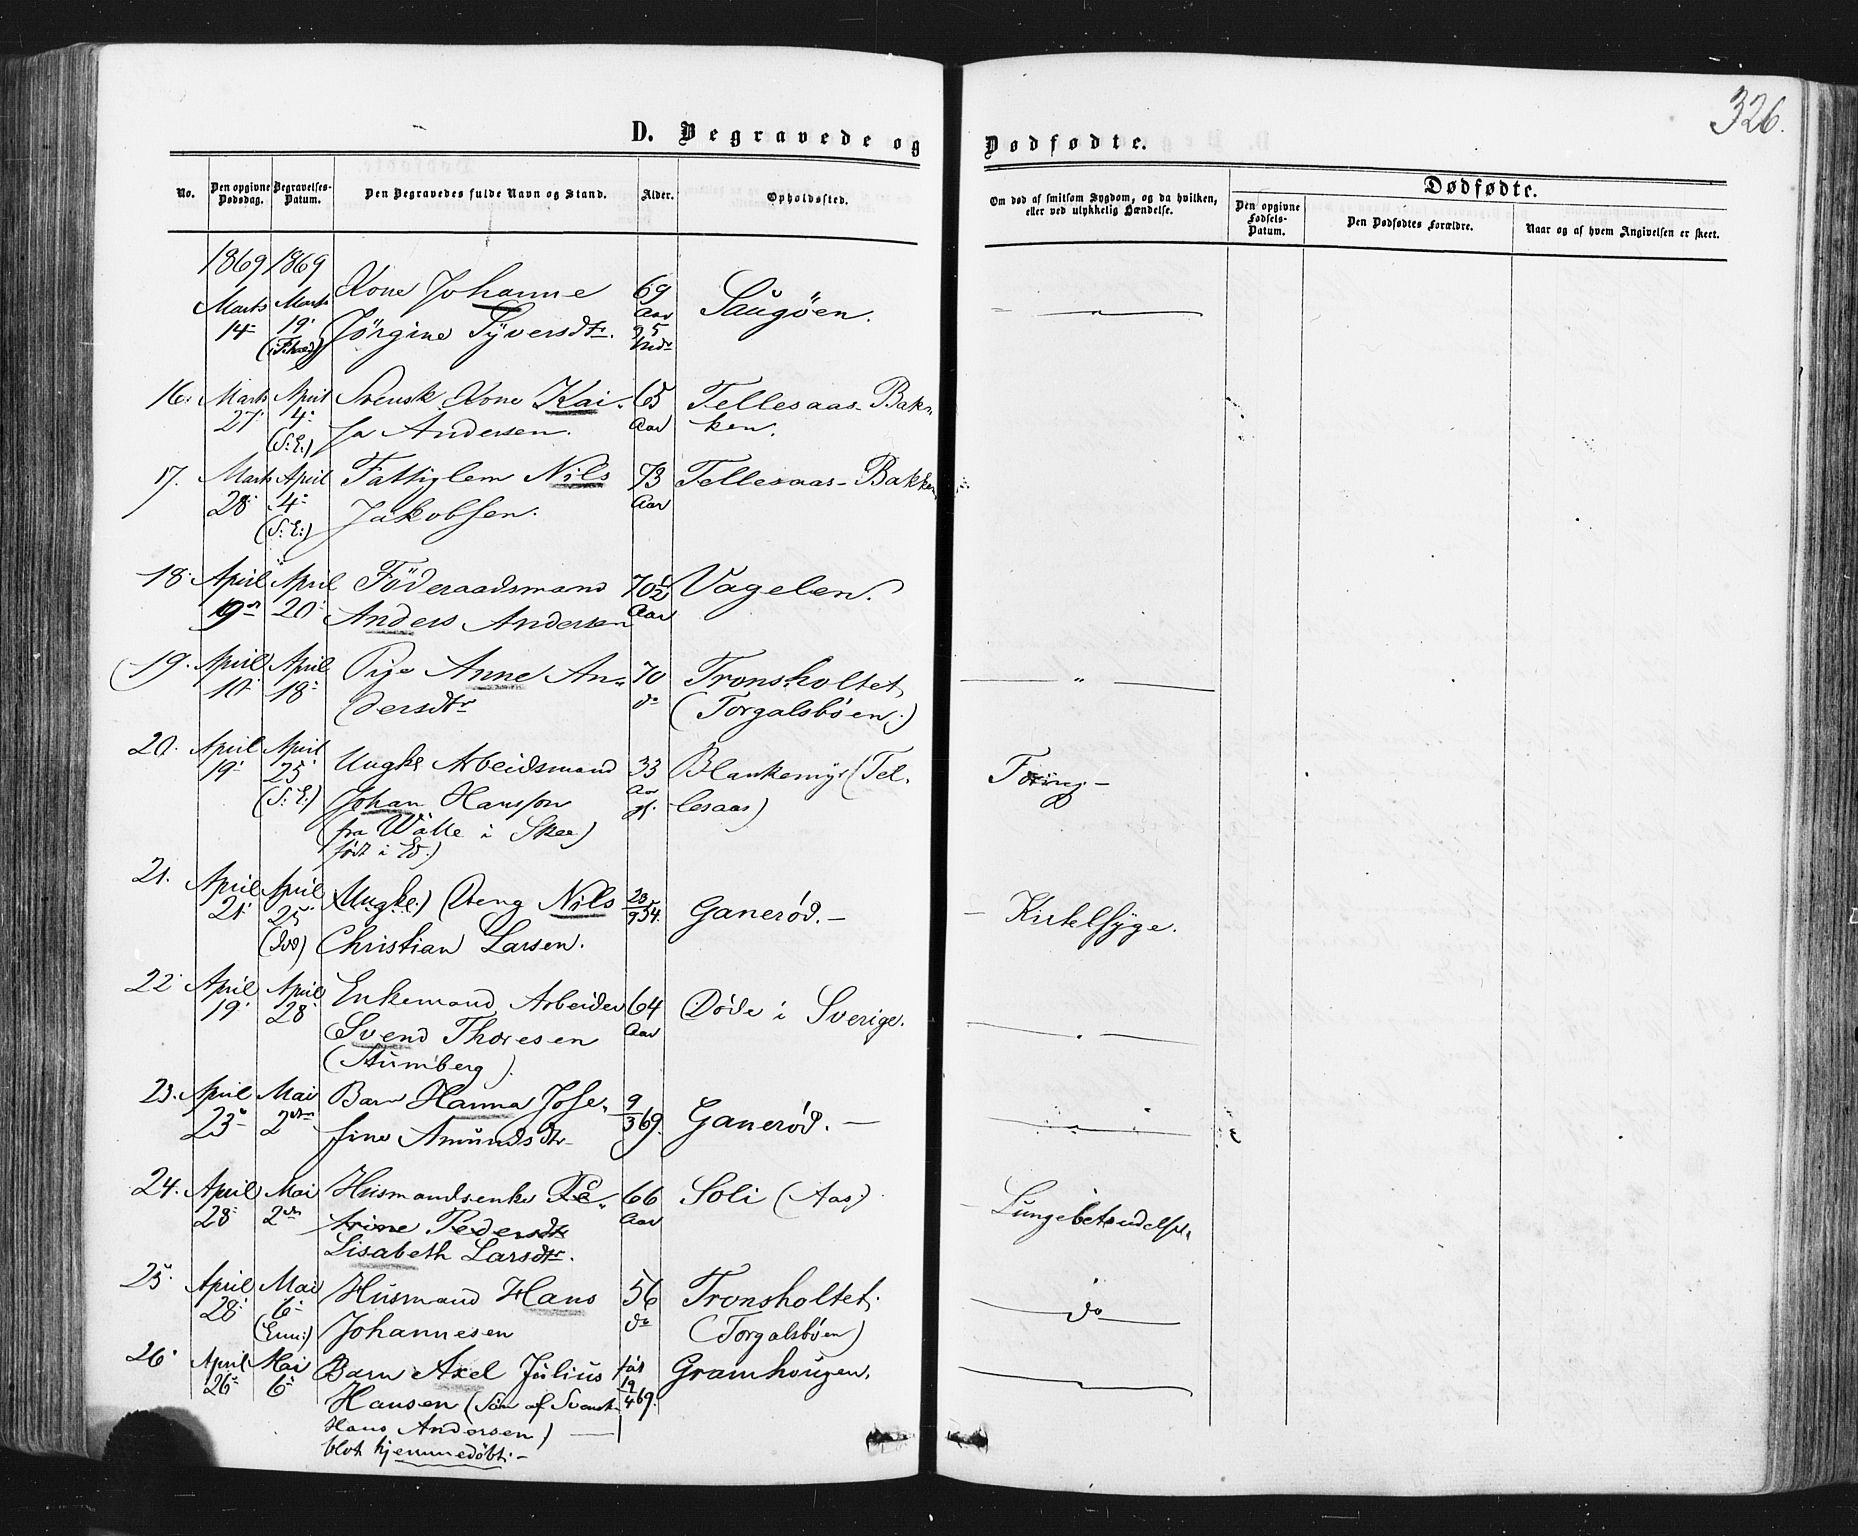 326.
D. Begravede og Dødfødte.
No. Den opgivne Dødsdag. Begravelses-Datum. Den Begravedes fulde Navn og Stand. Alder. Opholdssted. Om død af smitsom Sygdom, og da hvilken, eller ved ulykkelig Hændelse.
Dødfødte.
Den opgivne Fødsels-Datum. Den Dødfødtes Forældre. Naar og af hvem Angivelsen er skeet.
1869 1869
Marts Marts Kone Johanne 69 Saugöen.
14 19 Jörgine Syversdtr. Aar
16. Marts April Svensk Kone Kai- 65 Tellesaas-Bak-
27 4 ja Andersen. Aar ken.
(S: E:)
17. Marts April Fattiglem Nils 73 Tellesaas-Bakken
28 4 Jakobsen. Aar
(S: E:)
18 April April Föderaadsmand 70½ Vagelen.
19 20 Anders Andersen Aar
19. April April Pige Anne An- 70 Tronsholtet
10 18 dersdtr do (Torgalsbøen.)
20. April April Ungk. Arbeidsmand 33 Blankemyr (Tel- 
19 25 Johan Hansson Aar lesaas)
(S: E:) (fra Wälle i Skee)
født i Ed.)
21. April April (Ungk.) Dreng Nils 23/9 54. Ganerød. - Kirtelsyge.
21 25 Christian Larsen.
22 April April Enkemand Arbeider 64 Døde i Sverige.
19 28 Svend Thoresen Aar
23. April Mai Barn Hanna Jose- 9/3 69. Ganerød. -
23 2den fine Amundsdtr
24. April Mai Husmandsenke Pe- 66 Soli (Aas) Lungebetændelse.
28 2den trine Pedersdtr Aar
Lisabeth Larsdtr.
25. April Mai Husmand Hans 56 Tronsholtet do
28 6 Johannesen do (Torgalsbøen)
26 April Mai Barn Axel Julius føt Gramhougen.
26 6 Hansen (Søn af Svensk 19/4 69.
Hans Andersen)
blot hjemmedøbt. -